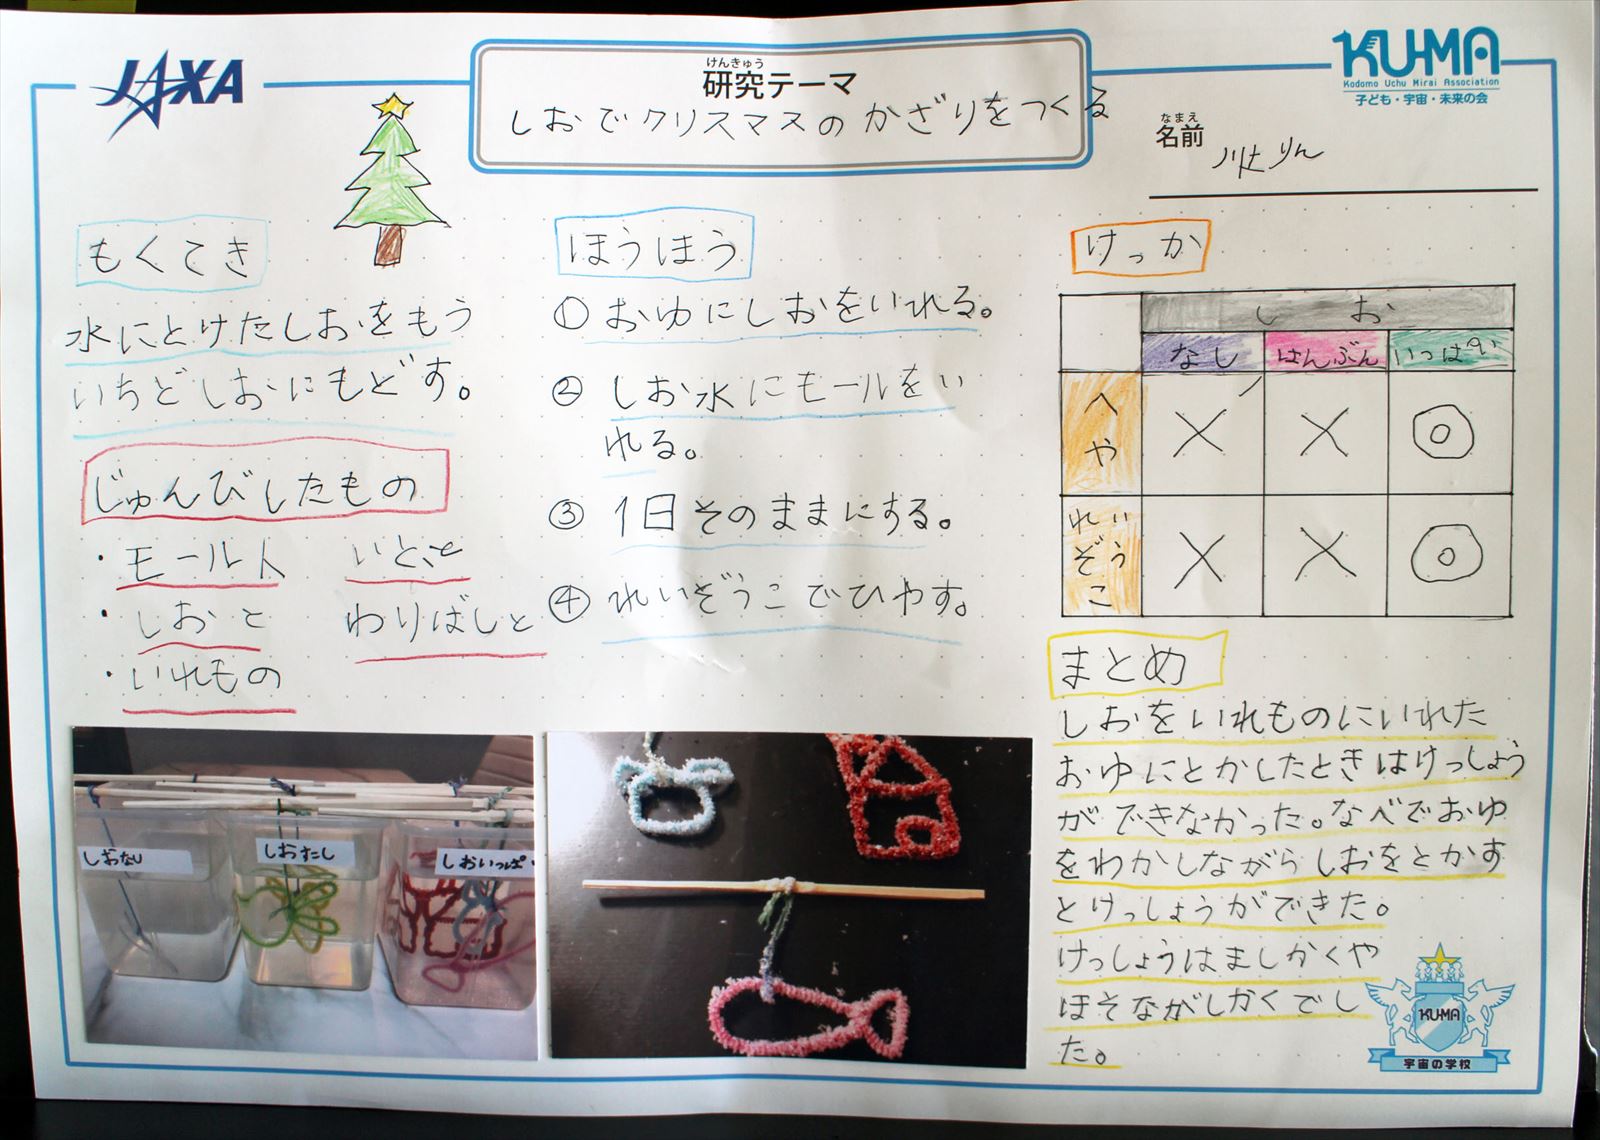 JAXA
けんきゅう
研究テーマ
しおでクリスマスのかざりをつくる
KU-MA
Kodomo Uchu Mirai Association
子ども・宇宙・未来の会
なまえ
名前
りん
もくてき
水にとけたしおをもう
いちどしおにもどす。
じゅんびしたもの
・モール
いと
・しおと
わりばしと
・いれもの
ほうほう
①おゆにしおをいれる。
②しお水にモールをい
れる。
③1日そのままにする。
④れいぞうこでひやす。
けっか
しお
なし はんぶん いっぱい
へや × × ◎
れいぞうこ × × ◎
まとめ
しおをいれものにいれた
おゆにとかしたときはけっしょう
ができなかった。なべでおゆ
をわかしながらしおをとかす
とけっしょうができた。
けっしょうはましかくや
ほそながしかくでし
た。
しおなし
しおすこし
しおいっぱい
KU-MA
宇宙の学校